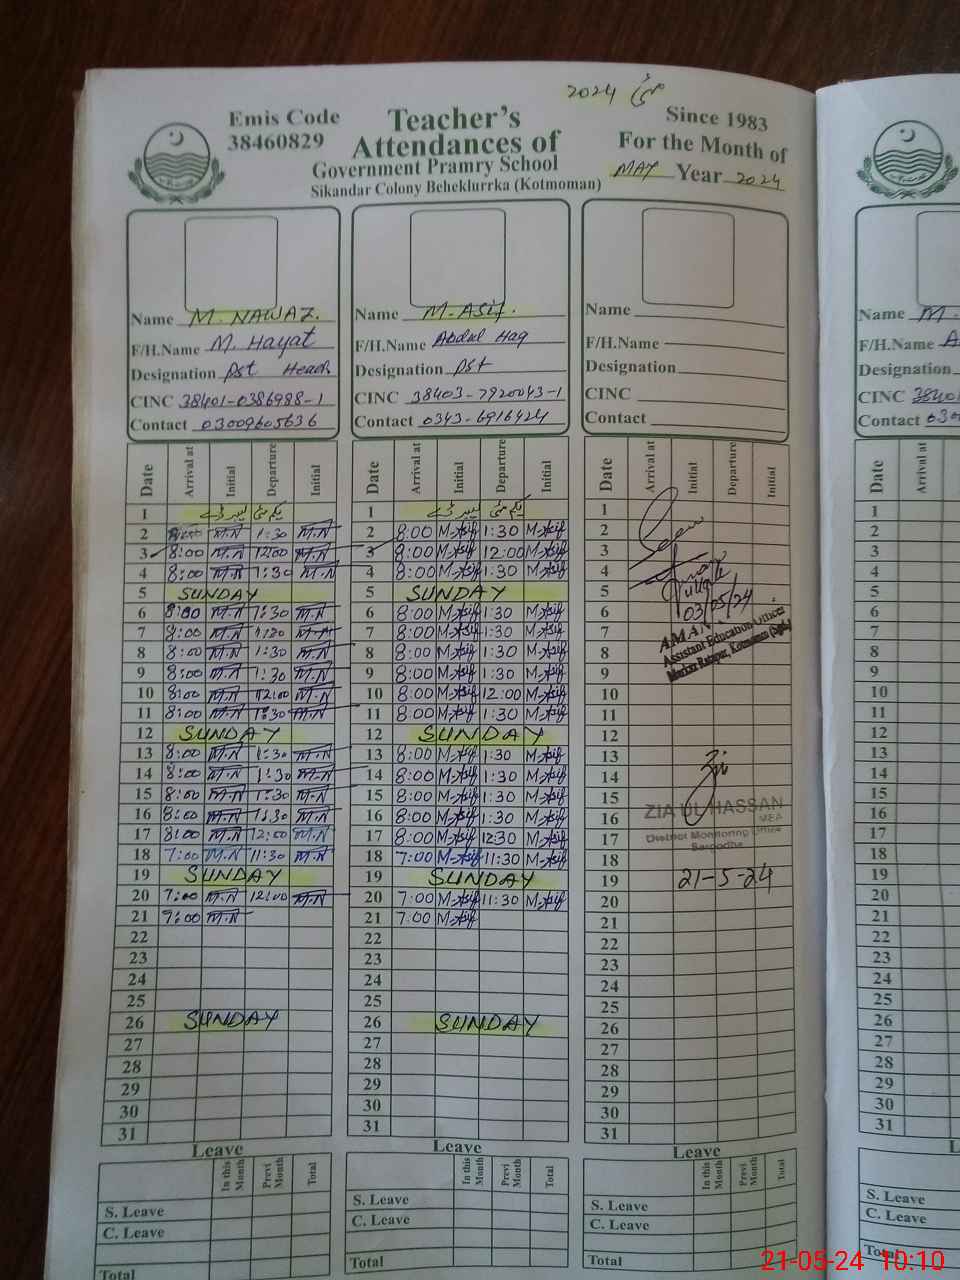 مئی 2024
Emis Code
38460829
Teacher's
Attendances of
Government Pramry School
Sikandar Colony Beheklurrka (Kotmoman)
Since 1983
For the Month of
MAY Year 2024
Name M. NAWAZ.
F/H.Name M. Hayat
Designation Pst Head
CINC 38401-0386988-1
Contact 03009605636
Date Arrival at Initial Departure Initial
1 یکم مئی لیبر ڈے
2 M.N 1:30 M.N
3 8:00 M.N 12:00 M.N
4 8:00 M.N 1:30 M.N
5 SUNDAY
6 8:00 M.N 1:30 M.N
7 8:00 M.N 1:30 M.N
8 8:00 M.N 1:30 M.N
9 8:00 M.N 1:30 M.N
10 8:00 M.N 12:00 M.N
11 8:00 M.N 1:30 M.N
12 SUNDAY
13 8:00 M.N 1:30 M.N
14 8:00 M.N 1:30 M.N
15 8:00 M.N 1:30 M.N
16 8:00 M.N 1:30 M.N
17 8:00 M.N 12:00 M.N
18 7:00 M.N 11:30 M.N
19 SUNDAY
20 7:00 M.N 12:00 M.N
21 7:00 M.N
22
23
24
25
26 SUNDAY
27
28
29
30
31
Leave
In this Month Previ Month Total
S. Leave
C. Leave
Total
Name M-Asif.
F/H.Name Abdul Haq
Designation Pst
CINC 38403-7920043-1
Contact 0343-6916424
Date Arrival at Initial Departure Initial
1 یکم مئی لیبر ڈے
2 8:00 M-Asif 1:30 M-Asif
3 8:00 M-Asif 12:00 M-Asif
4 8:00 M-Asif 1:30 M-Asif
5 SUNDAY
6 8:00 M-Asif 1:30 M-Asif
7 8:00 M-Asif 1:30 M-Asif
8 8:00 M-Asif 1:30 M-Asif
9 8:00 M-Asif 1:30 M-Asif
10 8:00 M-Asif 12:00 M-Asif
11 8:00 M-Asif 1:30 M-Asif
12 SUNDAY
13 8:00 M-Asif 1:30 M-Asif
14 8:00 M-Asif 1:30 M-Asif
15 8:00 M-Asif 1:30 M-Asif
16 8:00 M-Asif 1:30 M-Asif
17 8:00 M-Asif 12:30 M-Asif
18 7:00 M-Asif 11:30 M-Asif
19 SUNDAY
20 7:00 M-Asif 11:30 M-Asif
21 7:00 M-Asif
22
23
24
25
26 SUNDAY
27
28
29
30
31
Leave
In this Month Previ Month Total
S. Leave
C. Leave
Total
Name
F/H.Name
Designation
CINC
Contact
Date Arrival at Initial Departure Initial
1
2
3
4
5
6 03/05/24
7 AMAN
8 Assistant Education Officer
9 Markaz Kotmoman (Sgd.)
10
11
12
13
14
15
16 ZIA UL HASSAN
MEA
17 District Monitoring Office
Sargodha
18
19 21-5-24
20
21
22
23
24
25
26
27
28
29
30
31
Leave
In this Month Previ Month Total
S. Leave
C. Leave
Total
Name M-
F/H.Name A
Designation
CINC 38401
Contact 030
Date Arrival at
1
2
3
4
5
6
7
8
9
10
11
12
13
14
15
16
17
18
19
20
21
22
23
24
25
26
27
28
29
30
31
S. Leave
C. Leave
Total
21-05-24 10:10